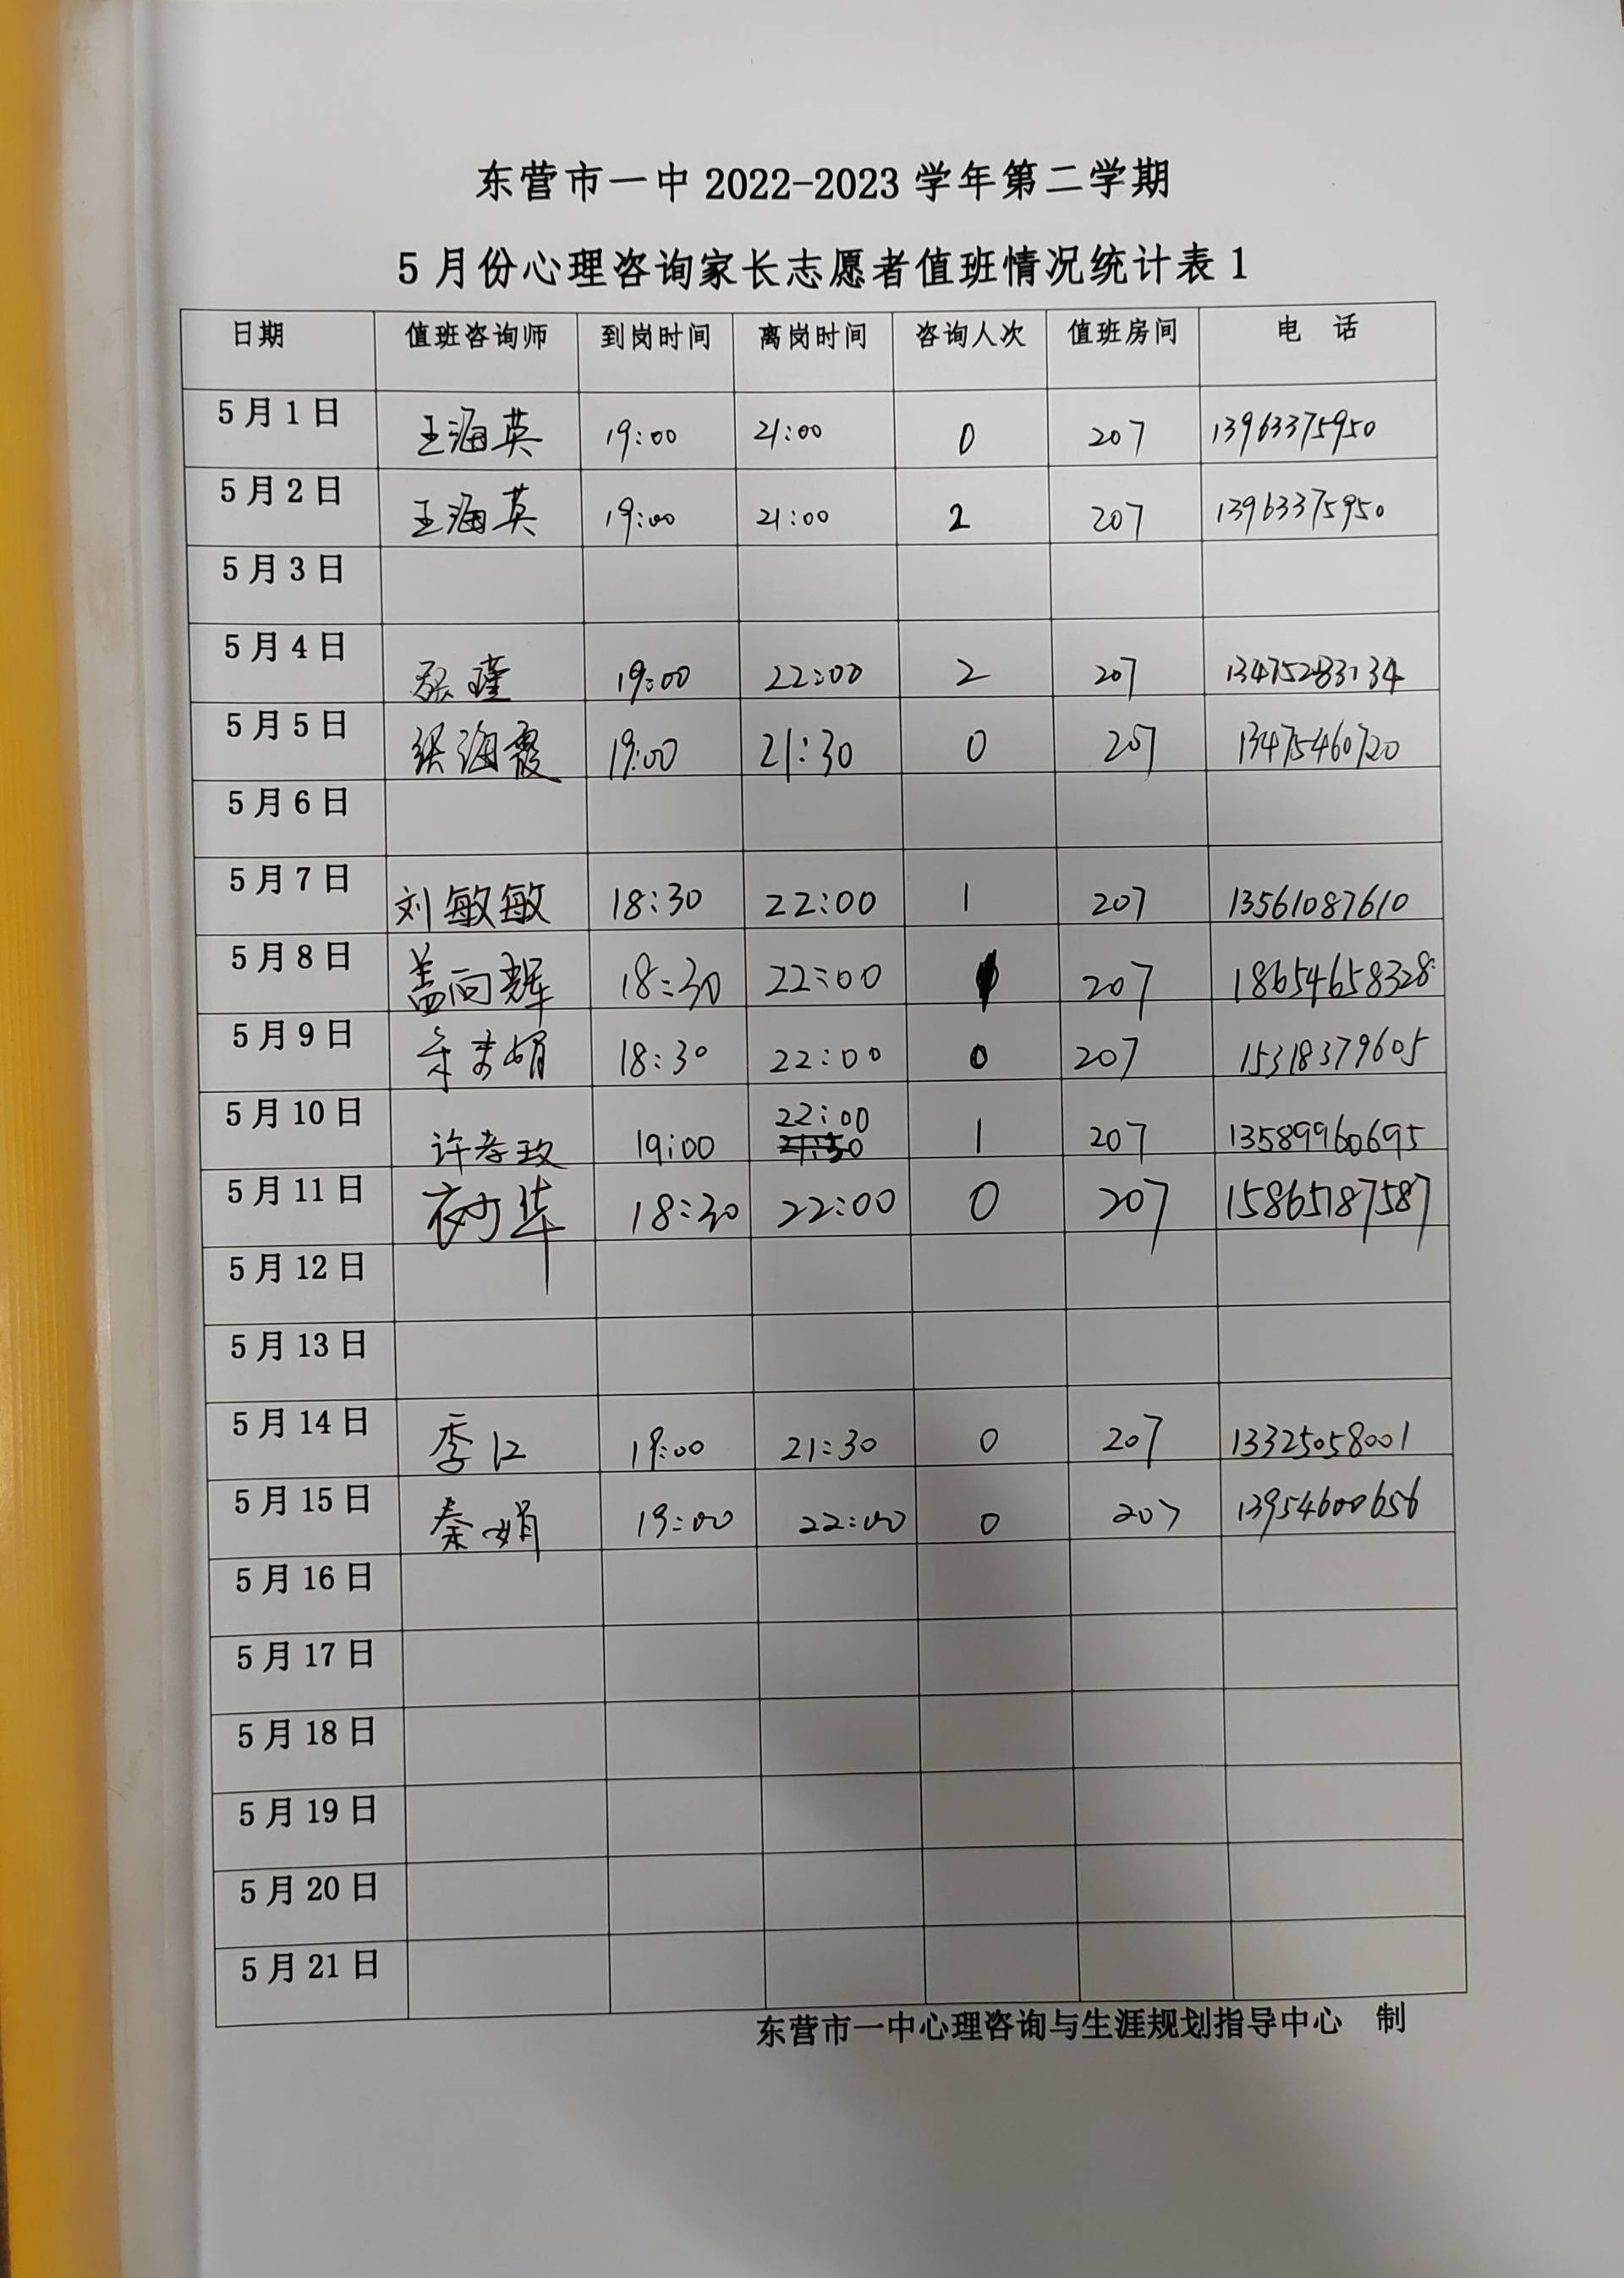 东营市一中 2022-2023 学年第二学期
5 月份心理咨询家长志愿者值班情况统计表 1
日期 值班咨询师 到岗时间 离岗时间 咨询人次 值班房间 电 话
5 月 1 日 王海英 19:00 21:00 0 207 13963375950
5 月 2 日 王海英 19:00 21:00 2 207 13963375950
5 月 3 日
5 月 4 日 张瑾 19:00 22:00 2 207 13475283134
5 月 5 日 张海霞 19:00 21:30 0 207 13475460720
5 月 6 日
5 月 7 日 刘敏敏 18:30 22:00 1 207 13561087610
5 月 8 日 盖向辉 18:30 22:00 207 18654658328
5 月 9 日 18:30 22:00 0 207 15318379605
5 月 10 日 许孝政 19:00 22:00 1 207 13589960695
5 月 11 日 18:30 22:00 0 207 15865187587
5 月 12 日
5 月 13 日
5 月 14 日 季江 19:00 21:30 0 207 13325058001
5 月 15 日 秦娟 19:00 22:00 0 207 13954600656
5 月 16 日
5 月 17 日
5 月 18 日
5 月 19 日
5 月 20 日
5 月 21 日
东营市一中心理咨询与生涯规划指导中心 制